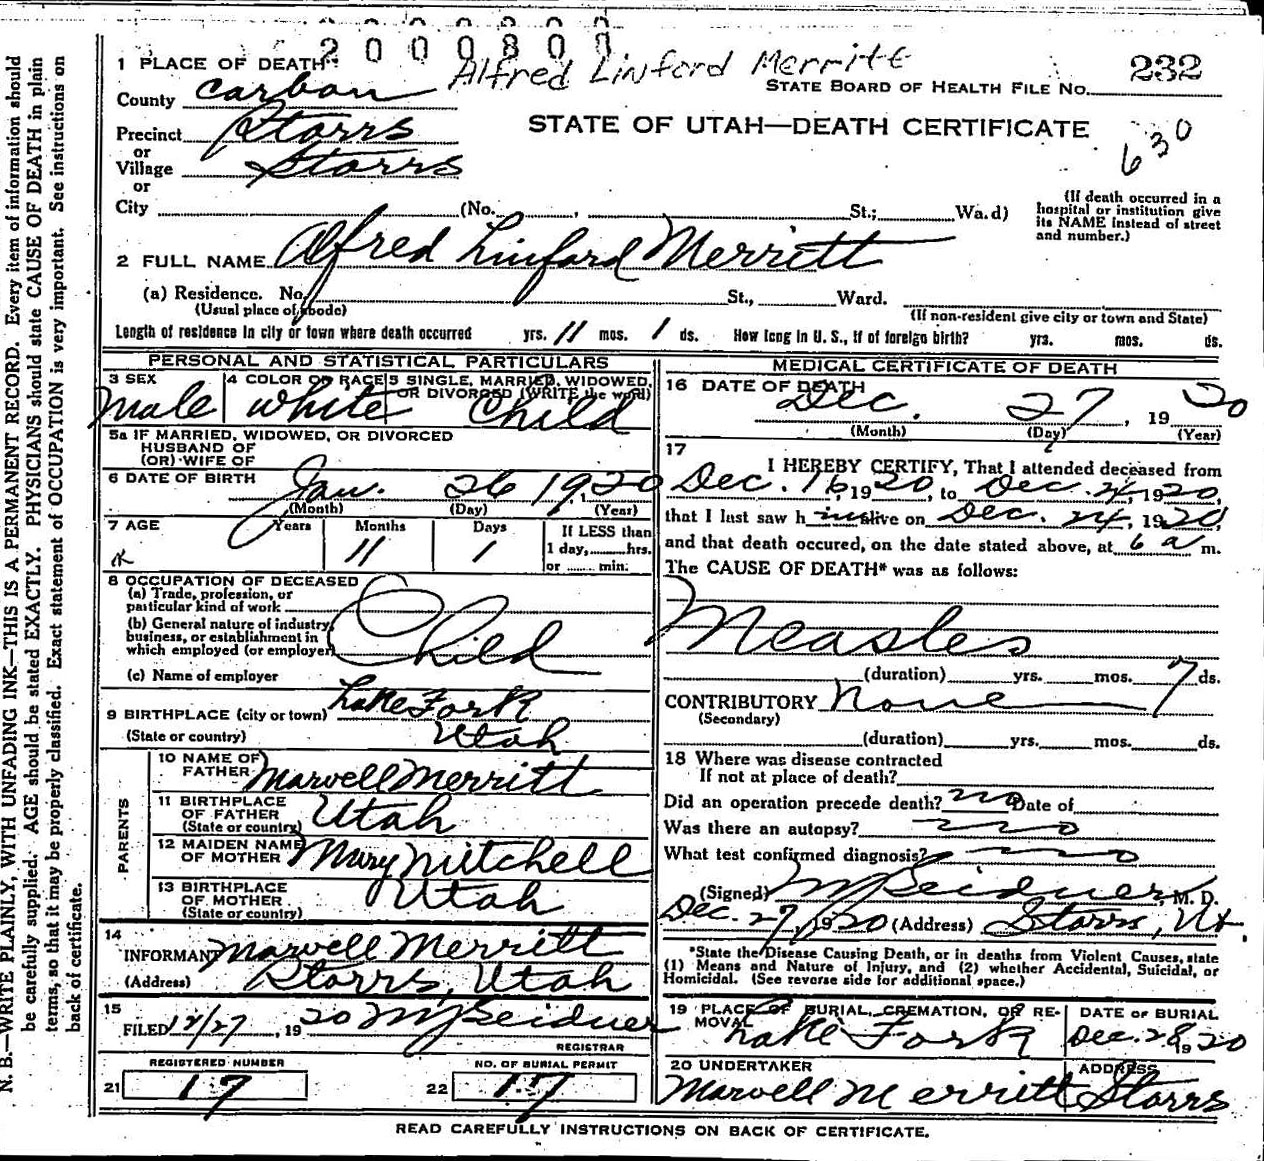 2000800
Alfred Linford Merritt
232
STATE BOARD OF HEALTH FILE No.
STATE OF UTAH—DEATH CERTIFICATE
630
1 PLACE OF DEATH
County Carbon
Precinct Storrs
or
Village Storrs
or
City (No. , St.; Wa.d)
(If death occurred in a hospital or institution give its NAME instead of street and number.)
2 FULL NAME Alfred Linford Merritt
(a) Residence. No. St., Ward.
(Usual place of abode)
(If non-resident give city or town and State)
Length of residence in city or town where death occurred yrs. 11 mos. 1 ds. How long in U. S., if of foreign birth? yrs. mos. ds.
PERSONAL AND STATISTICAL PARTICULARS
3 SEX Male
4 COLOR OR RACE White
5 SINGLE, MARRIED, WIDOWED, OR DIVORCED (WRITE the word) Child
5a IF MARRIED, WIDOWED, OR DIVORCED
HUSBAND OF
(OR) WIFE OF
6 DATE OF BIRTH Jan. 26 19, 1920
(Month) (Day) (Year)
7 AGE Years Months Days If LESS than
11 1 1 day, hrs.
or min.
8 OCCUPATION OF DECEASED
(a) Trade, profession, or
particular kind of work
(b) General nature of industry,
business, or establishment in
which employed (or employer) Child
(c) Name of employer
9 BIRTHPLACE (city or town) Lake Fork
(State or country) Utah
PARENTS
10 NAME OF FATHER Marvell Merritt
11 BIRTHPLACE OF FATHER (State or country) Utah
12 MAIDEN NAME OF MOTHER Mary Mitchell
13 BIRTHPLACE OF MOTHER (State or country) Utah
14
INFORMANT Marvell Merritt
(Address) Storrs, Utah
15
FILED 12/27, 1920 M J Seidner
REGISTRAR
REGISTERED NUMBER
21 17
NO. OF BURIAL PERMIT
22 17
MEDICAL CERTIFICATE OF DEATH
16 DATE OF DEATH
Dec. 27, 1920
(Month) (Day) (Year)
17
I HEREBY CERTIFY, That I attended deceased from
Dec. 16, 1920, to Dec. 24, 1920,
that I last saw h im alive on Dec. 24, 1920,
and that death occured, on the date stated above, at 6 a m.
The CAUSE OF DEATH* was as follows:
Measles
(duration) yrs. mos. 7 ds.
CONTRIBUTORY None
(Secondary)
(duration) yrs. mos. ds.
18 Where was disease contracted
If not at place of death?
Did an operation precede death? no Date of
Was there an autopsy? no
What test confirmed diagnosis? no
(Signed) M J Seidner, M. D.
Dec. 27, 1920 (Address) Storrs, Ut.
*State the Disease Causing Death, or in deaths from Violent Causes, state
(1) Means and Nature of Injury, and (2) whether Accidental, Suicidal, or
Homicidal. (See reverse side for additional space.)
19 PLACE OF BURIAL, CREMATION, OR REMOVAL
Lake Fork
DATE OF BURIAL
Dec. 28, 1920
20 UNDERTAKER
Marvell Merritt
ADDRESS
Storrs
READ CAREFULLY INSTRUCTIONS ON BACK OF CERTIFICATE.
N. B.—WRITE PLAINLY, WITH UNFADING INK—THIS IS A PERMANENT RECORD. Every item of information should
be carefully supplied. AGE should be stated EXACTLY. PHYSICIANS should state CAUSE OF DEATH in plain
terms, so that it may be properly classified. Exact statement of OCCUPATION is very important. See instructions on
back of certificate.